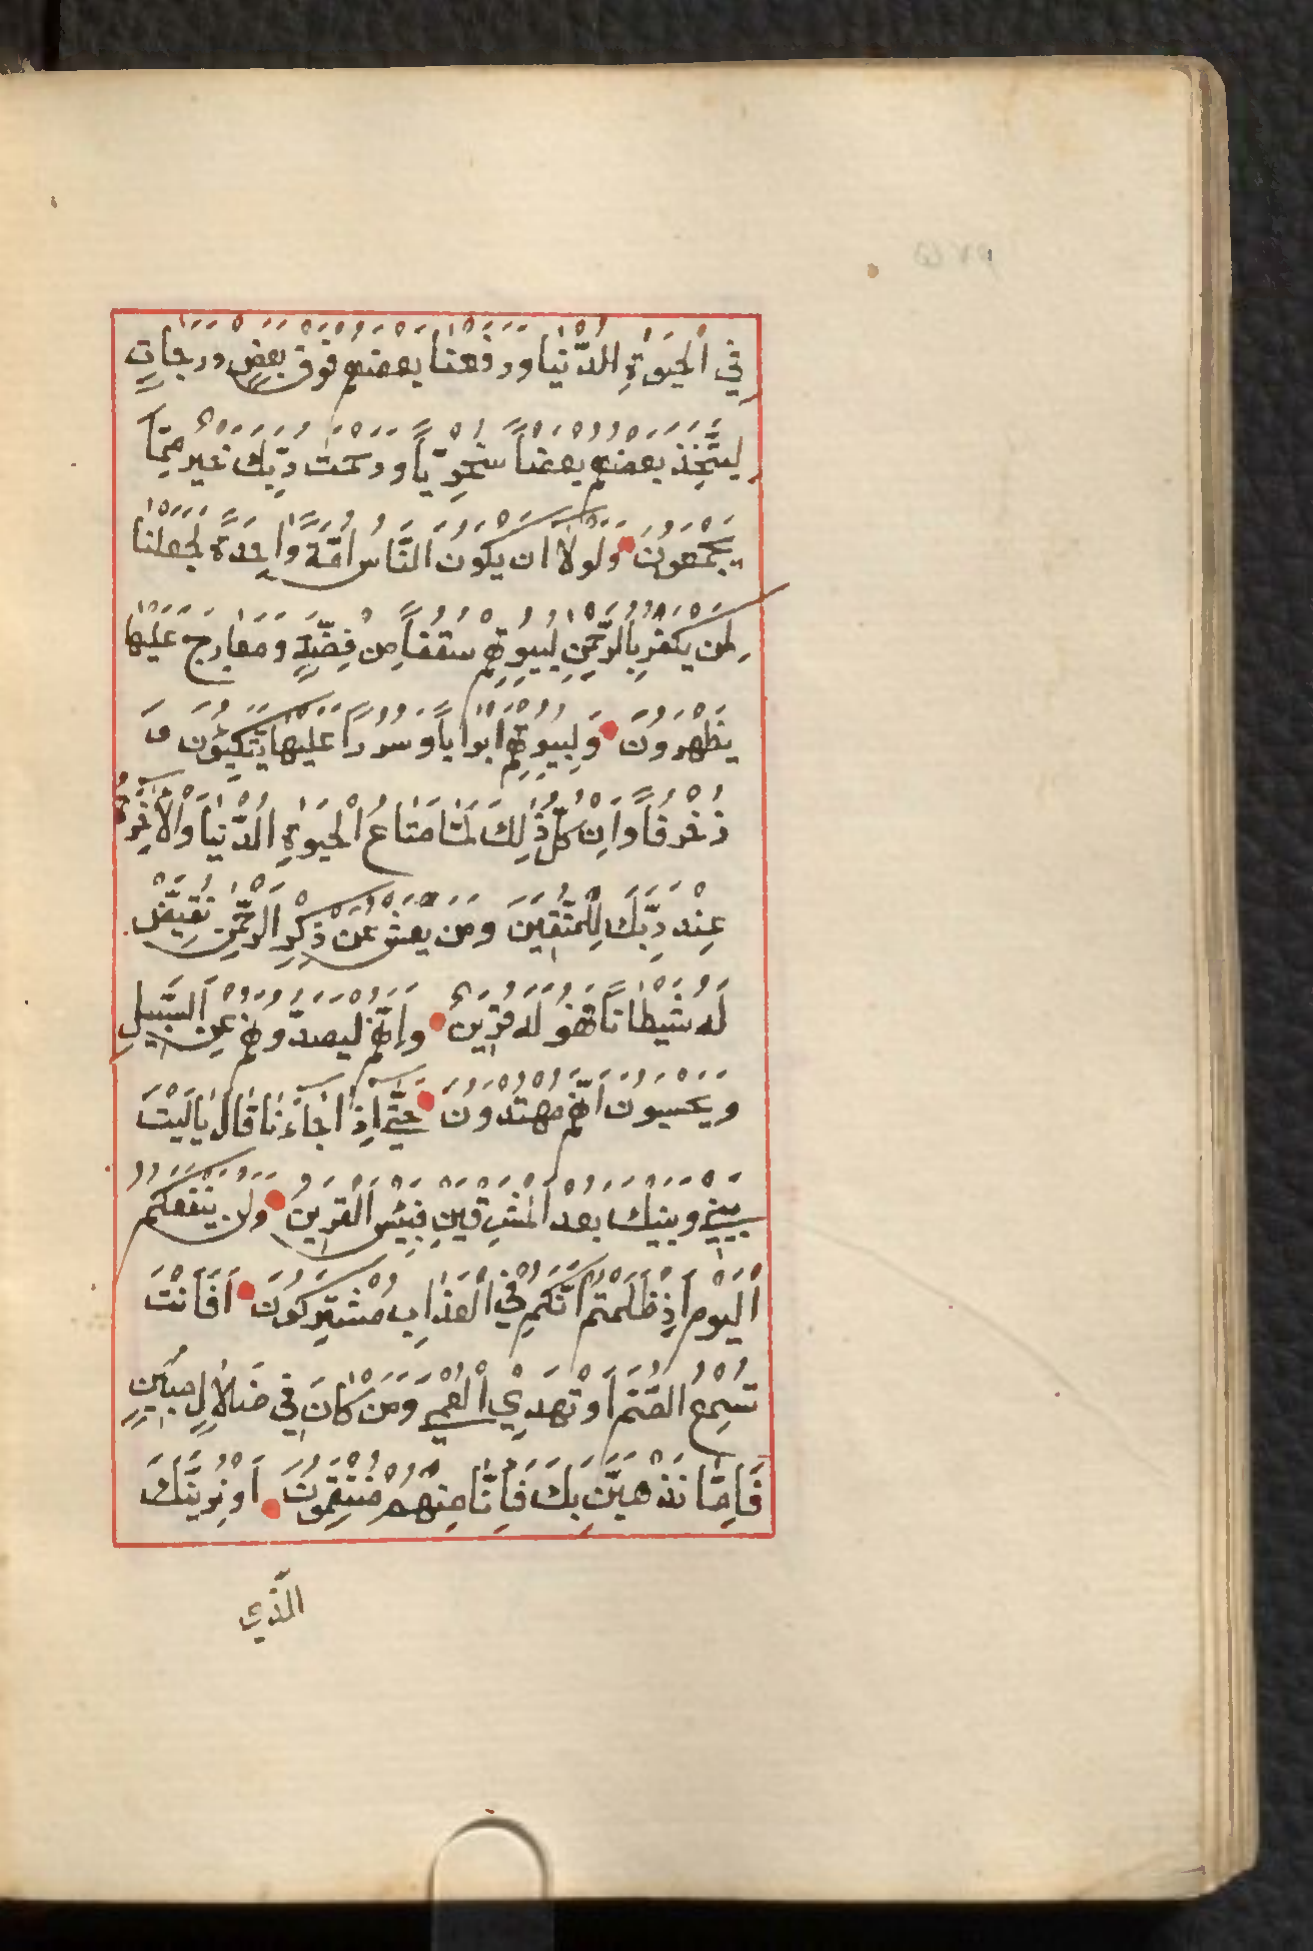 في الْحَيٰوةِ الدُّنْيَا وَرَفَعْنَا بَعْضَهُمْ فَوْقَ بَعْضٍ دَرَجَاتٍ
لِيَتَّخِذَ بَعْضُهُمْ بَعْضاً سُخْرِيّاً وَرَحْمَتُ رَبِّكَ خَيْرٌ مِمَّا
يَجْمَعُونَ وَلَوْلَا اَنْ يَكُونَ النَّاسُ اُمَّةً وَاحِدَةً لَجَعَلْنَا
لِمَنْ يَكْفُرُ بِالرَّحْمٰنِ لِبُيُوتِهِمْ سُقُفاً مِنْ فِضَّةٍ وَمَعَارِجَ عَلَيْهَا
يَظْهَرُونَ وَلِبُيُوتِهِمْ اَبْوَاباً وَسُرُراً عَلَيْهَا يَتَّكِئُونَ وَ
زُخْرُفاً وَاِنْ كُلُّ ذٰلِكَ لَمَّا مَتَاعُ الْحَيٰوةِ الدُّنْيَا وَالْاٰخِرَةُ
عِنْدَ رَبِّكَ لِلْمُتَّقِينَ وَمَنْ يَعْشُ عَنْ ذِكْرِ الرَّحْمٰنِ نُقَيِّضْ
لَهُ شَيْطَاناً فَهُوَ لَهُ قَرِينٌ وَاِنَّهُمْ لَيَصُدُّونَهُمْ عَنِ السَّبِيلِ
وَيَحْسَبُونَ اَنَّهُمْ مُهْتَدُونَ حَتّٰى اِذَا جَاءَنَا قَالَ يَالَيْتَ
بَيْنِي وَبَيْنَكَ بُعْدَ الْمَشْرِقَيْنِ فَبِئْسَ الْقَرِينُ وَلَنْ يَنْفَعَكُمُ
الْيَوْمَ اِذْ ظَلَمْتُمْ اَنَّكُمْ فِي الْعَذَابِ مُشْتَرِكُونَ اَفَاَنْتَ
تُسْمِعُ الصُّمَّ اَوْ تَهْدِي الْعُمْيَ وَمَنْ كَانَ فِي ضَلَالٍ مُبِينٍ
فَاِمَّا نَذْهَبَنَّ بِكَ فَاِنَّا مِنْهُمْ مُنْتَقِمُونَ اَوْ نُرِيَنَّكَ
الَّذِي